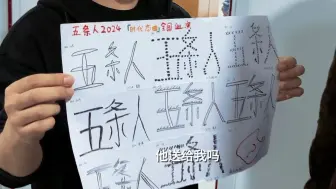 五条人2024「时代恋曲」全国巡演
五条人 五条人 五条人
五条人 五条人 五条人
五条人 五条人
他送给我吗